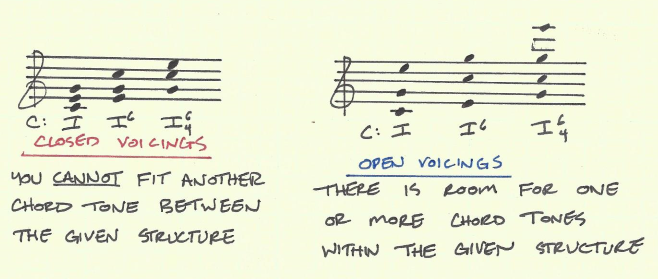 C: I I6 I6 4
CLOSED VOICINGS
YOU CANNOT FIT ANOTHER
CHORD TONE BETWEEN
THE GIVEN STRUCTURE
C: I I6 I6 4
OPEN VOICINGS
THERE IS ROOM FOR ONE
OR MORE CHORD TONES
WITHIN THE GIVEN STRUCTURE